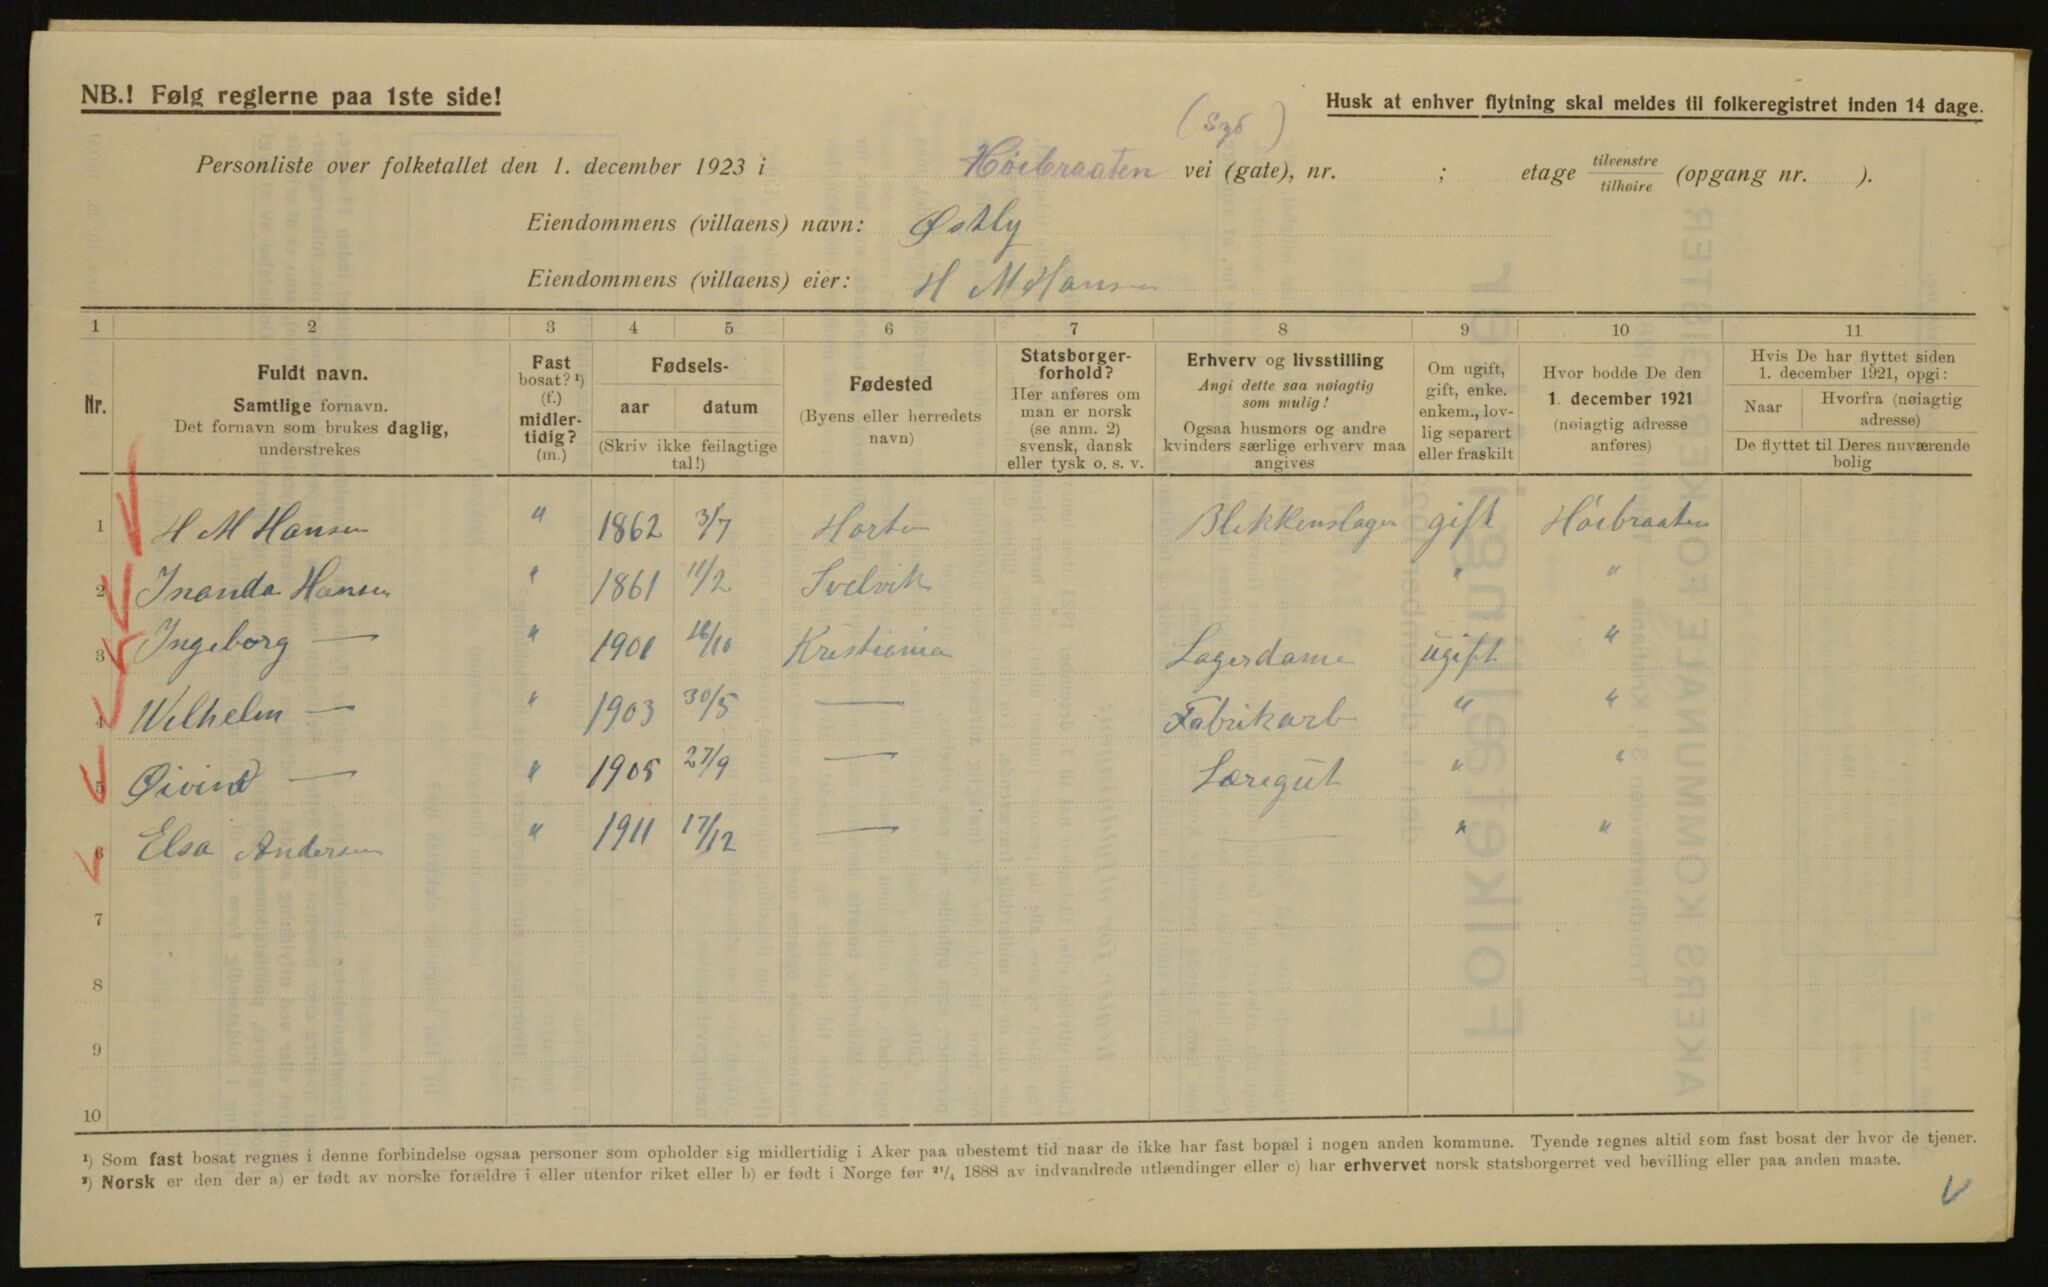 NB.! Følg reglerne paa 1ste side!
Husk at enhver flytning skal meldes til folkeregistret inden 14 dage.
Personliste over folketallet den 1. december 1923 i Høibraaten vei (gate), nr. ; etage tilvenstre tilhøire (opgang nr. ).
Eiendommens (villaens) navn: Østby
Eiendommens (villaens) eier: H M Hansen
1 2 3 4 5 6 7 8 9 10 11
Nr.
Fuldt navn.
Samtlige fornavn.
Det fornavn som brukes daglig,
understrekes
Fast
bosat? ¹)
(f.)
midler-
tidig?
(m.)
Fødsels-
aar datum
(Skriv ikke feilagtige
tal!)
Fødested
(Byens eller herredets
navn)
Statsborger-
forhold?
Her anføres om
man er norsk
(se anm. 2)
svensk, dansk
eller tysk o. s. v.
Erhverv og livsstilling
Angi dette saa nøiagtig
som mulig!
Ogsaa husmors og andre
kvinders særlige erhverv maa
angives
Om ugift,
gift, enke.
enkem., lov-
lig separert
eller fraskilt
Hvor bodde De den
1. december 1921
(nøiagtig adresse
anføres)
Hvis De har flyttet siden
1. december 1921, opgi:
Naar
Hvorfra (nøiagtig
adresse)
De flyttet til Deres nuværende
bolig
1 H M Hansen " 1862 3/7 Horten Blikkenslager gift Høibraaten
2 Inanda Hansen " 1861 11/2 Svelvik " "
3 Ingeborg — " 1901 16/10 Kristiania Lagerdame ugift "
4 Wilhelm — " 1903 30/5 — Fabrikarb " "
5 Øivind — " 1905 27/9 — Læregut " "
6 Elsa Andersen " 1911 17/12 — — " "
7
8
9
10
¹) Som fast bosat regnes i denne forbindelse ogsaa personer som opholder sig midlertidig i Aker paa ubestemt tid naar de ikke har fast bopæl i nogen anden kommune. Tyende regnes altid som fast bosat der hvor de tjener.
²) Norsk er den der a) er født av norske forældre i eller utenfor riket eller b) er født i Norge før 21/4 1888 av indvandrede utlændinger eller c) har erhvervet norsk statsborgerret ved bevilling eller paa anden maate.